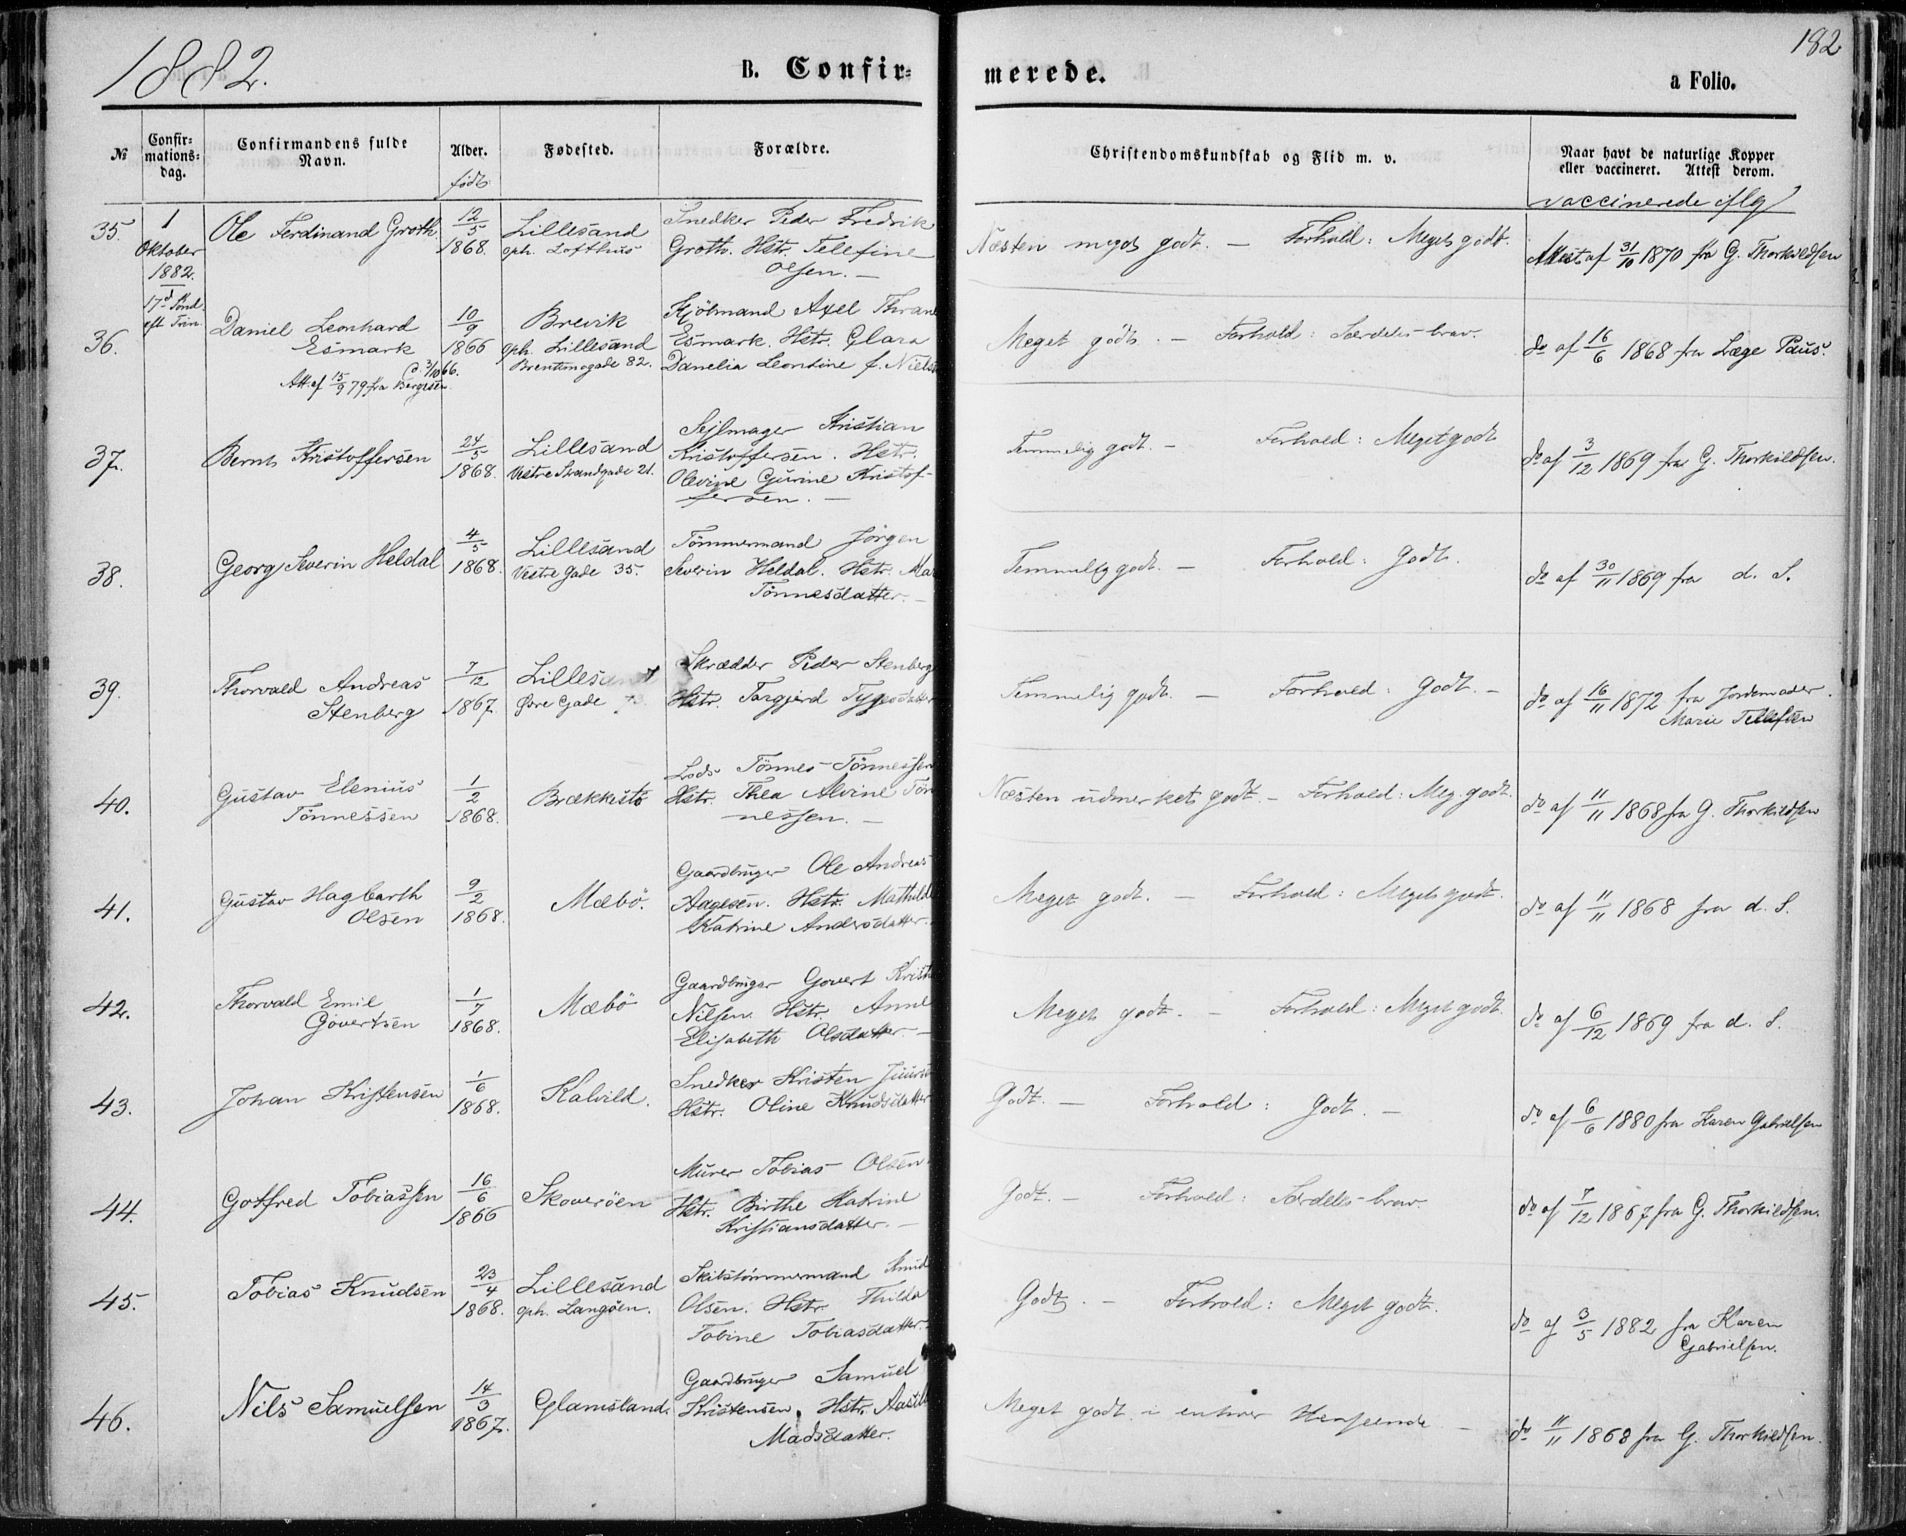 1882.
B. Confir=
merede.
182
a Folio.
№
Confir=
mations=
dag.
Confirmandens fulde
Navn.
Alder.
født
Fødested.
Forældre.
Christendomskundskab og Flid m. v.
Naar havt de naturlige Kopper
eller vaccineret. Attest derom.
vaccinerede iflg
35.
1
Oktober
1882.
17d Sönd.
eft Trin.
Ole Ferdinand Groth
12/5
1868.
Lillesand
oph. Lofthus
Snedker Peder Fredrik
Groth. Hstr. Telefine
Olsen. —
Næsten meget godt. — Forhold: Meget godt.
Attest af 31/10 1870 fra G. Thorkildsen
36.
Daniel Leonhard
Esmark
C. 3/10 66.
Att. af 15/9 79 fra Bergesen
10/9
1866
Brevik
oph. Lillesand
82.
Kjöbmand Axel Thrane
Esmark. Hstr. Clara
Danelia Leontine f. Niels
Meget godt. — Forhold: Særdeles brav.
do af 16/6 1868 fra Læge Paus.
37.
Bernt Kristoffersen
24/5
1868.
Lillesand
Vestre Strandgade 21.
Sejlmager Kristian
Kristoffersen. Hstr.
Olevine Gurine Kristof-
fersen. —
Temmelig godt. — Forhold: Meget godt
do af 3/12 1869 fra G. Thorkildsen.
38.
Georg Severin Heldal
4/5
1868.
Lillesand
Vestre Gade 35.
Tömmermand Jörgen
Severin Heldal. Hstr. Ma
Tönnesdatter. —
Temmelig godt. — Forhold: Godt.
do af 30/11 1869 fra d. S.
39.
Thorvald Andreas
Stenberg
7/12
1867.
Lillesand
Øvre Gade 73.
Skrædder Peder Stenberg
Hstr. Torgjerd Tygesdatter
Temmelig godt. — Forhold: Godt. —
do af 16/11 1872 fra Jordemoder
Marie Tellefsen
40.
Gustav Elenius
Tönnessen
1/2
1868.
Brækkestö
Lods Tönnes Tönnessen
Hstr. Thea Alvine Tön
nessen. —
Næsten udmerket godt. — Forhold: Meg. godt.
do af 11/11 1868 fra G. Thorkildsen
41.
Gustav Hagbarth
Olsen
9/2
1868.
Mæbö.
Gaardbruger Ole Andreas
Aagesen. Hstr. Mathilde
Katrine Andersdatter.
Meget godt. — Forhold: Meget godt.
do af 11/11 1868 fra d. S.
42.
Thorvald Emil
Govertsen
1/7
1868.
Mæbö
Gaardbruger Govert Kristi
Nilsen. Hstr. Anne
Elisabeth Olsdatter. —
Meget godt. — Forhold: Meget godt.
do af 6/12 1869 fra d. S.
43.
Johan Kristensen
1/6
1868.
Kalvild.
Snedker Kristen
Hstr. Oline Knudsdatter
Godt. — Forhold: Godt. —
do af 6/6 1880 fra Karen Gabrielsen
44.
Gotfred Tobiassen
16/6
1866
Skoveröen
Murer Tobias Olsen.
Hstr. Birthe Katrine
Kristiansdatter. —
Godt. — Forhold: Særdeles brav.
do af 7/12 1867 fra G. Thorkildsen.
45.
Tobias Knudsen
23/4
1868.
Lillesand
oph. Langöen.
Skibstömmermand Knud
Olsen. Hstr. Thilda
Tobine Tobiasdatter.
Godt. — Forhold: Meget godt.
do af 3/5 1882 fra Karen
Gabrielsen.
46.
Nils Samuelsen
14/3
1867.
Glamsland.
Gaardbruger Samuel
Kristensen. Hstr. Aasild
Madsdatter.
Meget godt i enhver Henseende —
do 11/11 1868 fra G. Thorkildsen.